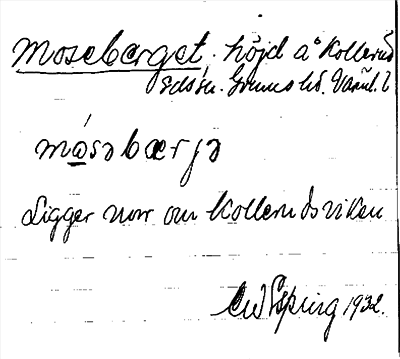 Moseberget. höjd å Kollerud
Eds sn. Grums hd. Värml. l
mo̲səbærjə
Ligger norr om Kollerudsviken
1932.